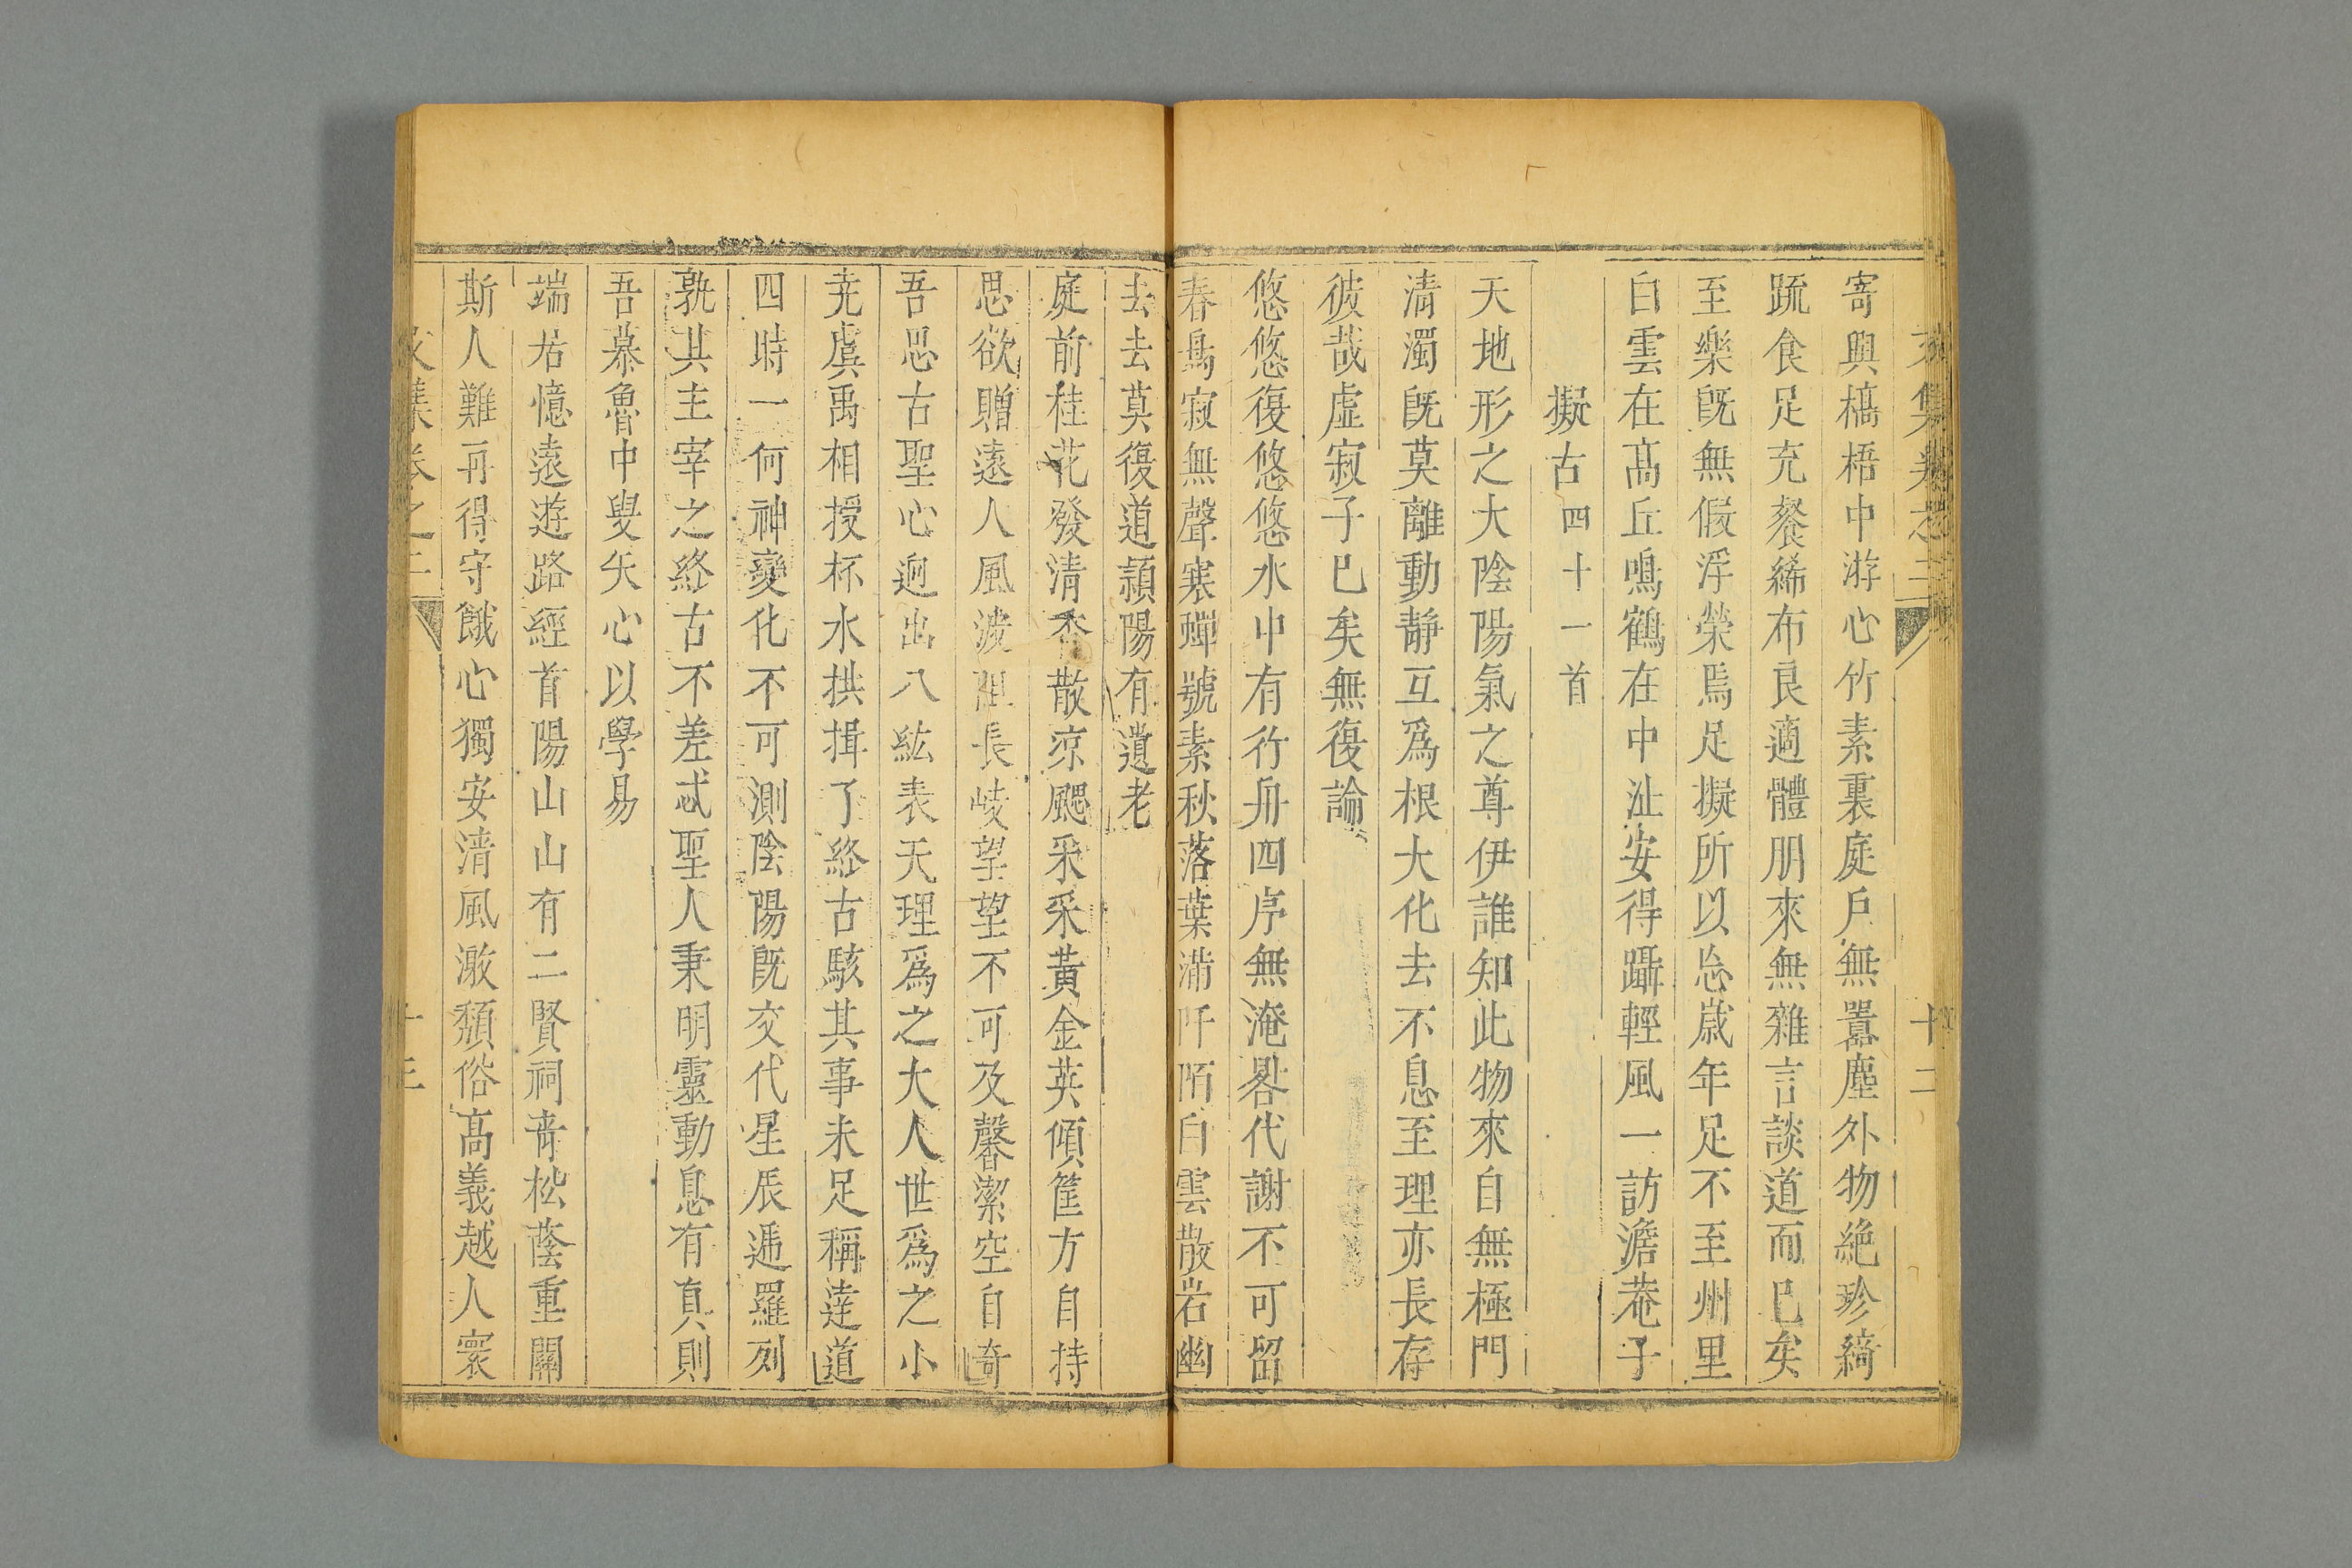 文集卷之二 十二
寄興槁梧中游心竹素裏庭戶無囂塵外物絶珍綺
蔬食足充餐絺布良適體朋來無雜言談道而已矣
至樂旣無假浮榮焉足擬所以忘歲年足不至州里
白雲在髙丘鳴鶴在中沚安得躡輕風一訪澹菴子
擬古四十一首
天地形之大陰陽氣之尊伊誰知此物來自無極門
淸濁旣莫離動靜互爲根大化去不息至理亦長存
彼哉虛寂子已矣無復論
悠悠復悠悠水中有行舟四序無淹畧代謝不可留
春鳥寂無聲寒蟬號素秋落葉滿阡陌白雲散岩幽
去去莫復道潁陽有遺老
庭前桂花發清香散涼颸采采黃金英傾筐方自持
思欲贈遠人風波阻長岐望望不可及馨潔空自奇
吾思古聖心逈出八紘表天理爲之大人世爲之小
尭虞禹相授杯水拱揖了終古駭其事未足稱達道
四時一何神變化不可測陰陽旣交代星辰遞羅列
孰其主宰之終古不差忒聖人秉明靈動息有真則
吾慕魯中叟矢心以學易
端居憶遠遊路經首陽山山有二賢祠青松蔭重關
斯人難再得守餓心獨安清風激頽俗髙義越人寰
文集卷之二 十三